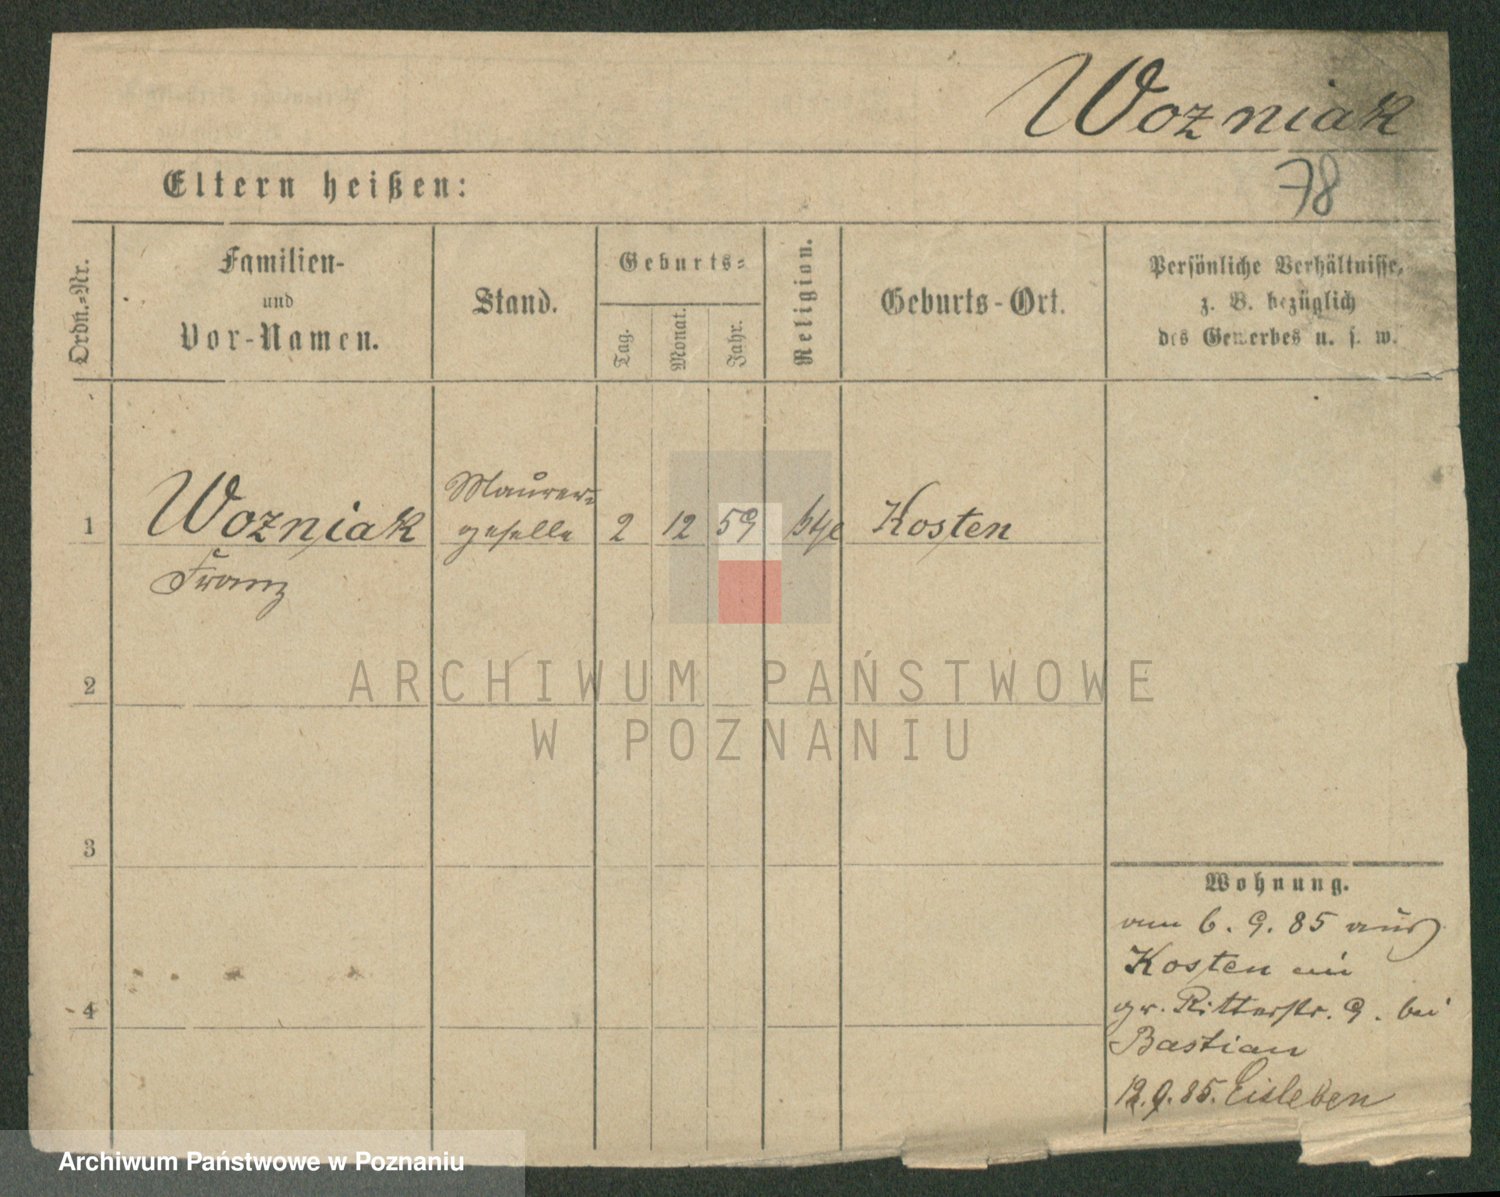 Wozniak
78
Eltern heißen:
Ordn.-Nr.
Familien-
und
Vor-Namen.
Stand.
Geburts-
Tag.
Monat.
Jahr.
Religion.
Geburts-Ort.
Persönliche Verhältnisse,
z. B. bezüglich
des Gewerbes u. s. w.
1
Wozniak
Franz
Maurer-
geselle
2
12
59
Kosten
2
3
4
Wohnung.
am 6. 9. 85 aus
Kosten ein
gr. Ritterstr. 9. bei
Bastian
12.9.85. Eisleben
ARCHIWUM PAŃSTWOWE
W POZNANIU
Archiwum Państwowe w Poznaniu